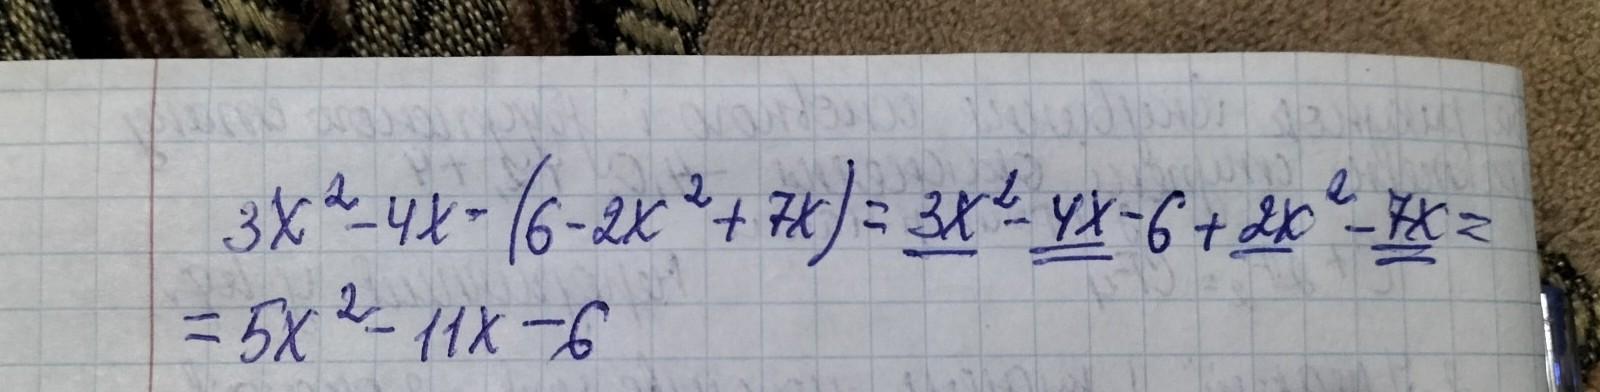 3x² - 4x - (6 - 2x² + 7x) = 3x² - 4x - 6 + 2x² - 7x =
= 5x² - 11x - 6